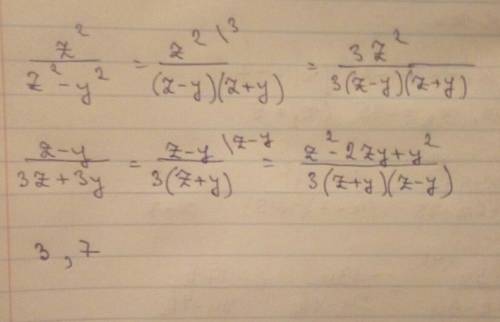 z²/(z²-y²) = z²\3/((z-y)(z+y)) = 3z²/(3(z-y)(z+y))
(z-y)/(3z+3y) = (z-y)\z-y/(3(z+y)) = (z²-2zy+y²)/(3(z+y)(z-y))
3,7